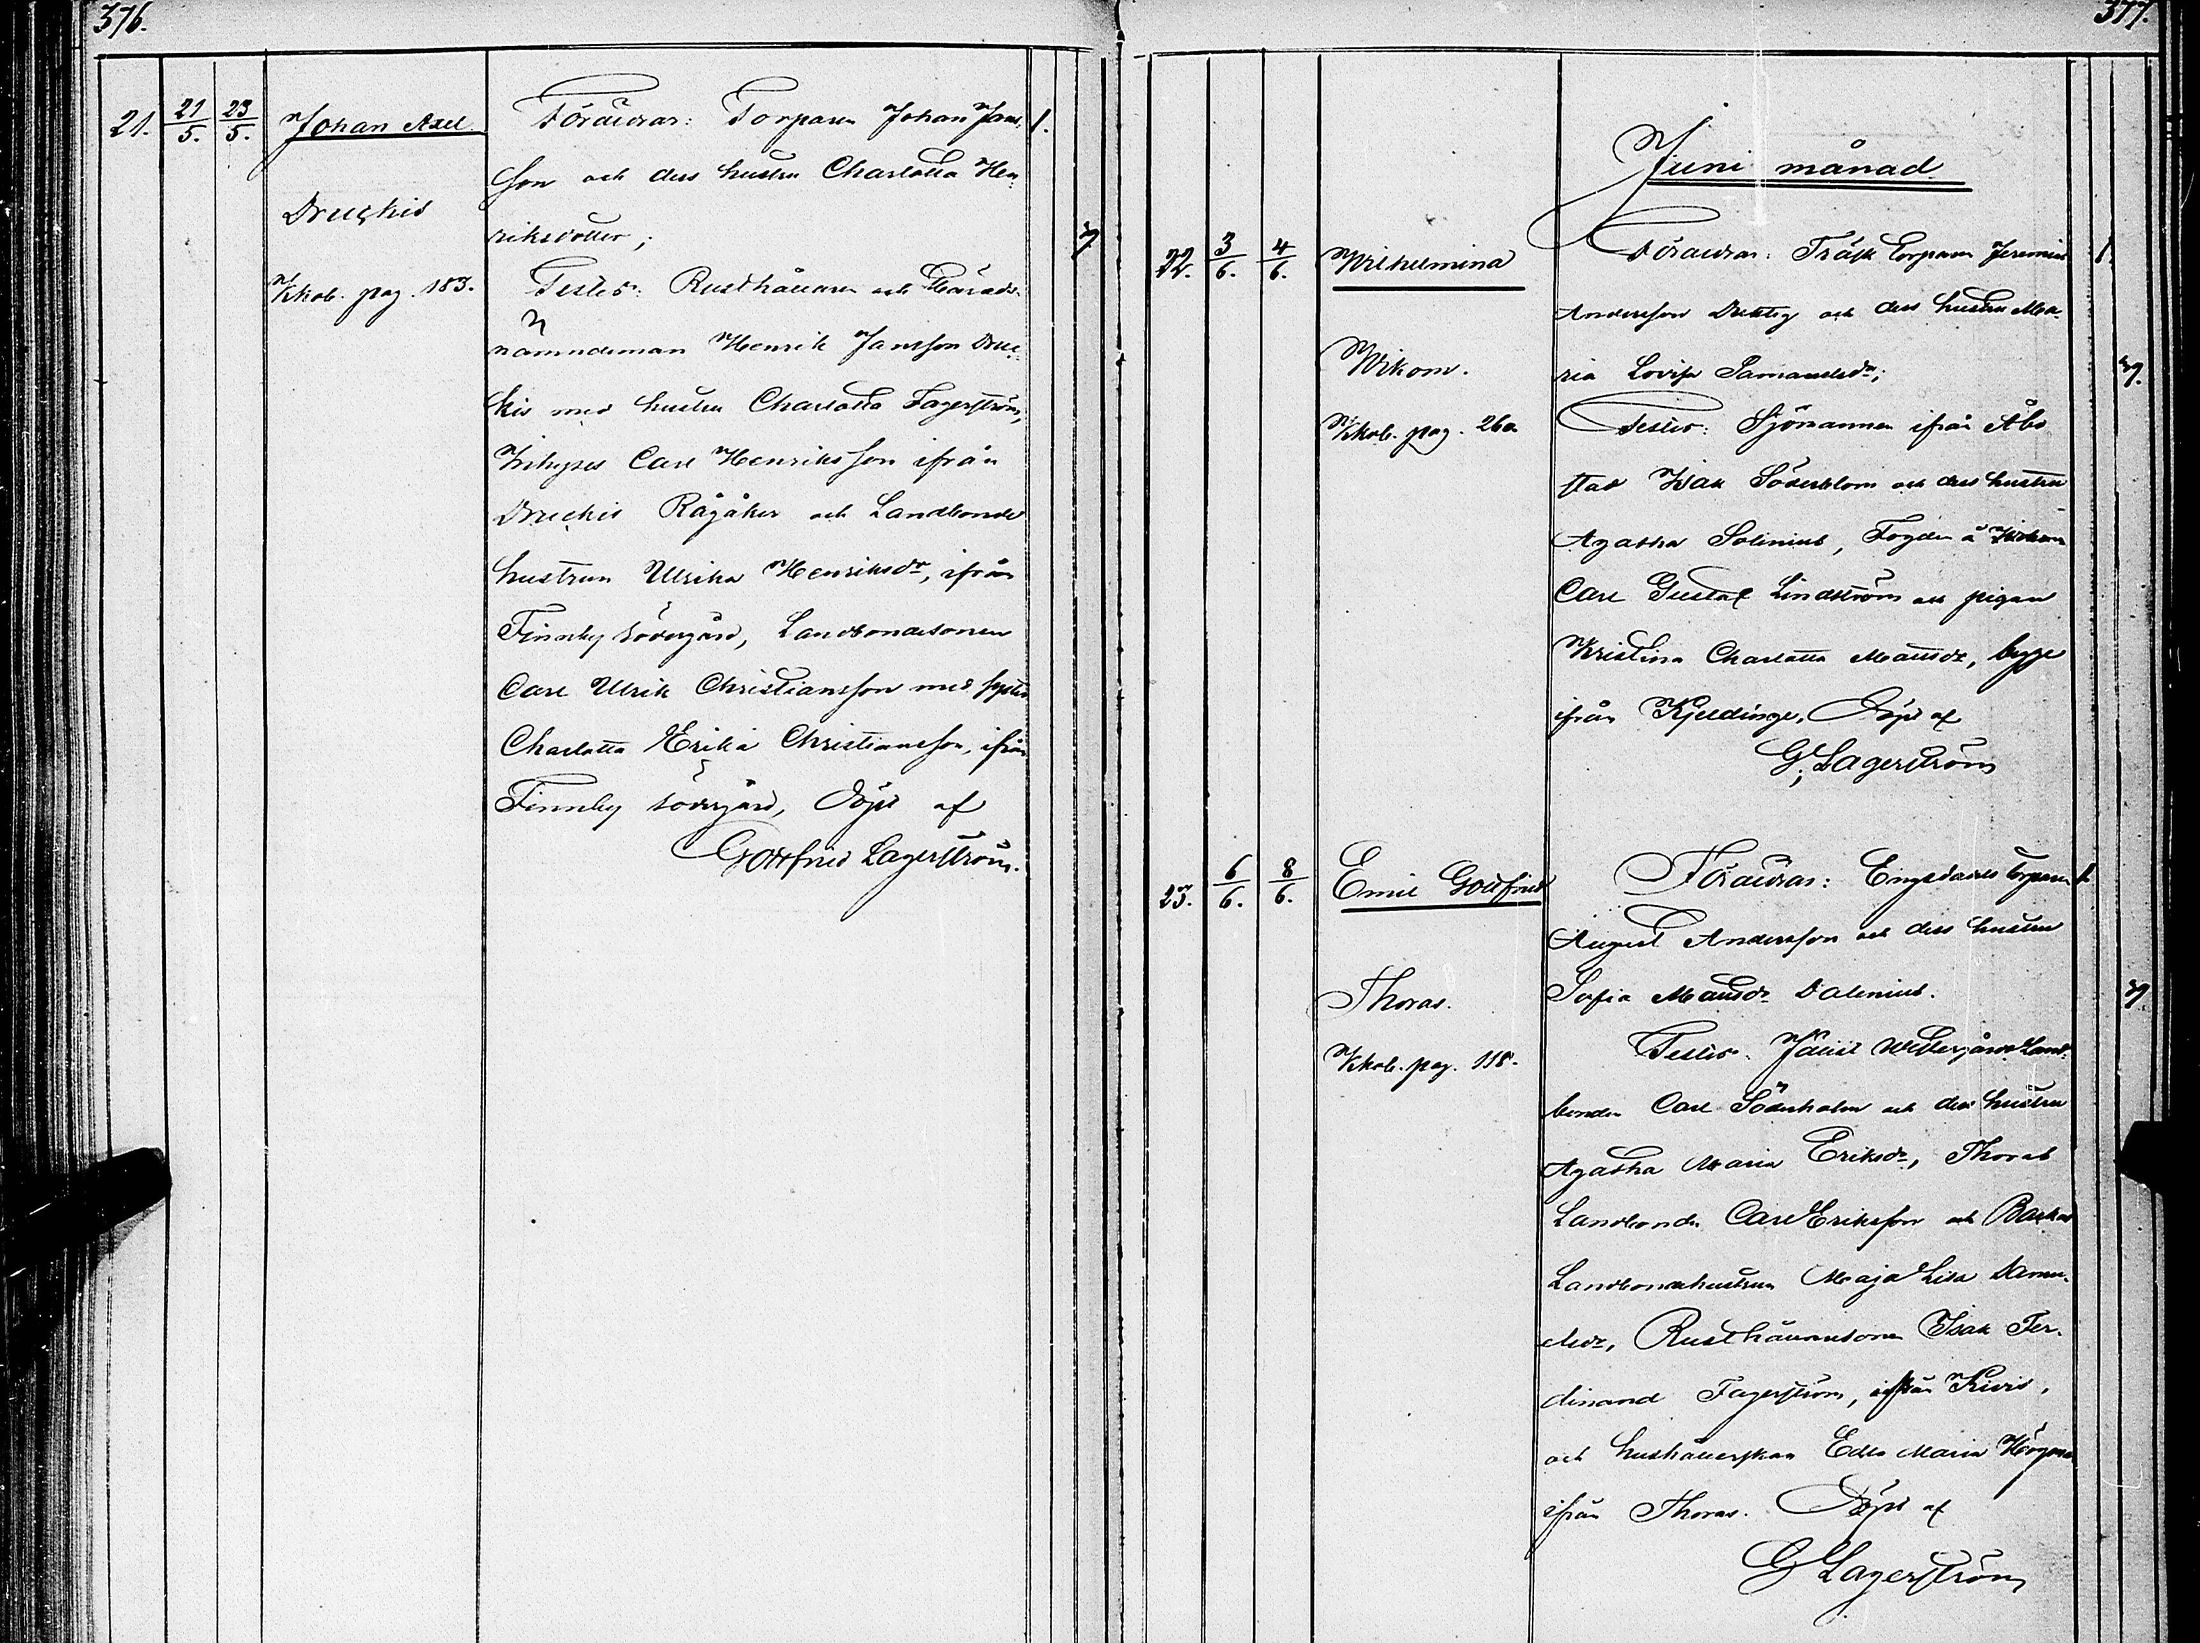 376.
21. 21/5. 23/5. Johan Axel. Föräldrar: Torparen Johan Jans- 1.
son och dess hustru Charlotta Hen
Druckis
riksdotter;
Kkob. pag. 183. Testes: Rusthållaren och Härads-
nämndeman Henrik Jansson Druc-
kis med hustru Charlotta Fagerström,
Carl Henriksson ifrån
Druckis Rågåker och Landbonde
hustrun Ulrika Henriksdr, ifrån
Finnby Södergård, Landbondesonen
Carl Ulrik Christiansson med syster
Charlotta Erika Christiansson, ifrån
Finnby Södergård, Döpt af
Gottfried Lagerström.
377.
Juni månad
22. 3/6. 4/6. Wilhelmina Föräldrar: Träsk Torparen Jeremias 1.
Andersson och dess hustru Ma-
Wikom. ria Lovisa Samuelsdr;
Kkob. pag. 260. Testes: Sjömannen ifrån Åbo
stad Isak Söderblom och dess hustru
Agatha Solenius, Fogden å Wikom
Carl Gustaf Lindström och pigan
Kristina Charlotta Matsdr, begge
ifrån Kjeldinge. Döpt af
G. Lagerström
23. 6/6. 8/6. Emil Gottfried Föräldrar: Engsdahls Torparen 1.
August Andersson och dess hustru
Thoras. Sofia Matsdr Dalenius.
Kkob. pag. 118. Testes: Westergårds Land-
bonden Carl Söderholm och dess hustru
Agatha Maria Eriksdr, Thoras
Landbonde Carl Eriksson och Backas
Landbondehustrun Maja Lisa Samu-
elsdr, Rusthållaresonen Isak Fer-
dinand Fagerström, ifrån Kivis,
och hushållerskan Edla Maria
ifrån Thoras. Döpt af
G Lagerström